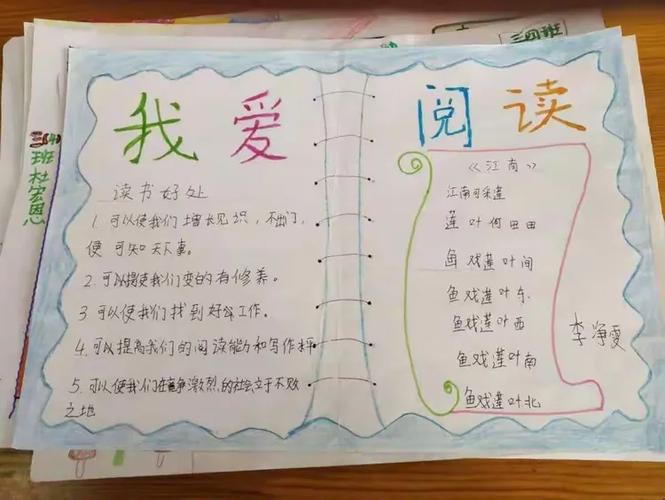 三四班
我 爱 阅 读
读书好处
1 可以使我们增长见识，不出门，
便可知天下事。
2. 可以提使我们变的有修养。
3 可以使我们找到好的工作。
4. 可以提高我们的阅读能力和写作水平
5. 可以使我们在竞争激烈的社会立于不败
之地
《江南》
江南可采莲
莲叶何田田
鱼戏莲叶间
鱼戏莲叶东
鱼戏莲叶西
鱼戏莲叶南
鱼戏莲叶北
李净雯
班杜宏恩